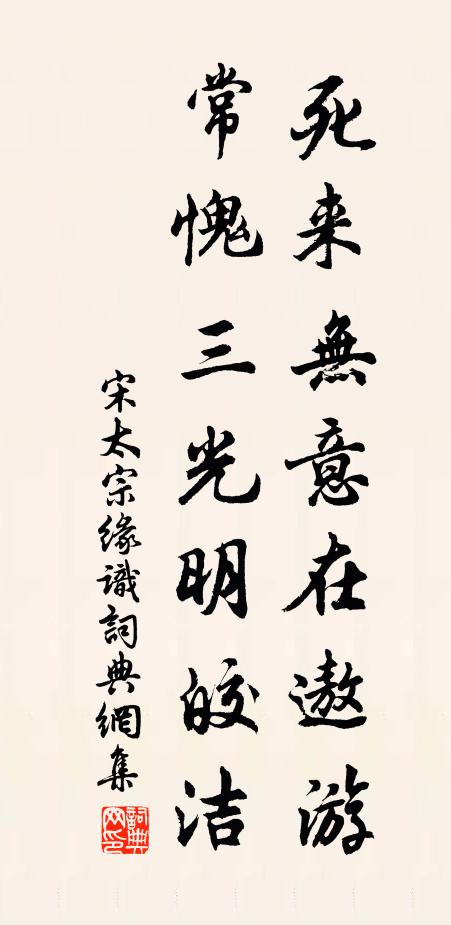 死来無意在遨游
常愧三光明皎洁
宋太宗缘識詞典網集
詞典網印